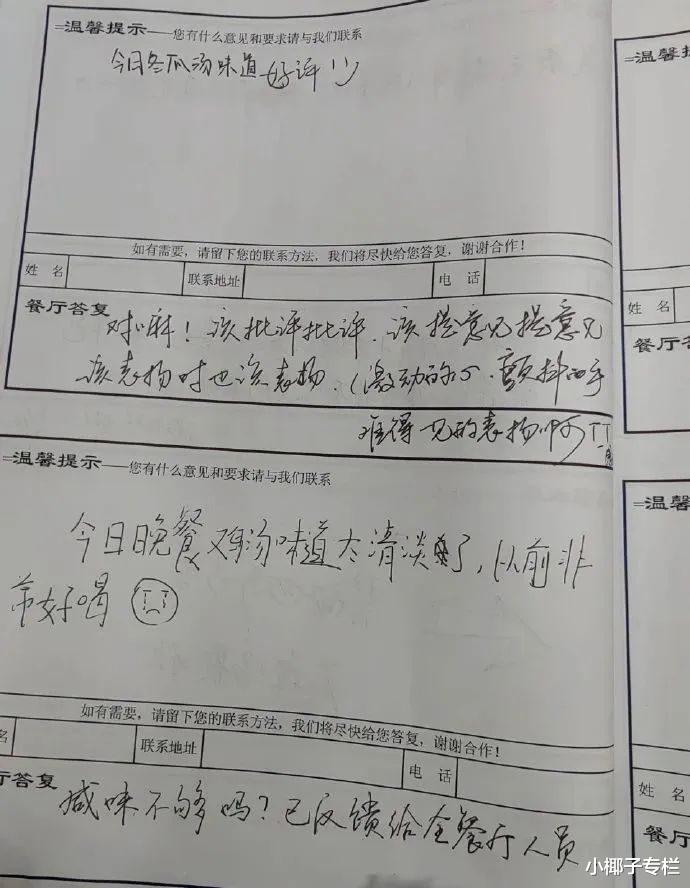 =温馨提示——您有什么意见和要求请与我们联系
今日冬瓜汤味道好评!!
如有需要，请留下您的联系方法，我们将尽快给您答复，谢谢合作！
姓 名 联系地址 电 话
餐厅答复
对嘛！该批评批评．该提意见提意见
该表扬时也该表扬．(激动的心．颤抖的手
难得一见的表扬啊TT
=温馨提示——您有什么意见和要求请与我们联系
今日晚餐鸡汤味道太清淡了，从前非
常好喝
如有需要，请留下您的联系方法，我们将尽快给您答复，谢谢合作！
名 联系地址 电 话
厅答复
咸味不够吗？已反馈给全餐厅人员
=温馨
姓 名
餐厅答
=温馨
姓 名
餐厅
小椰子专栏